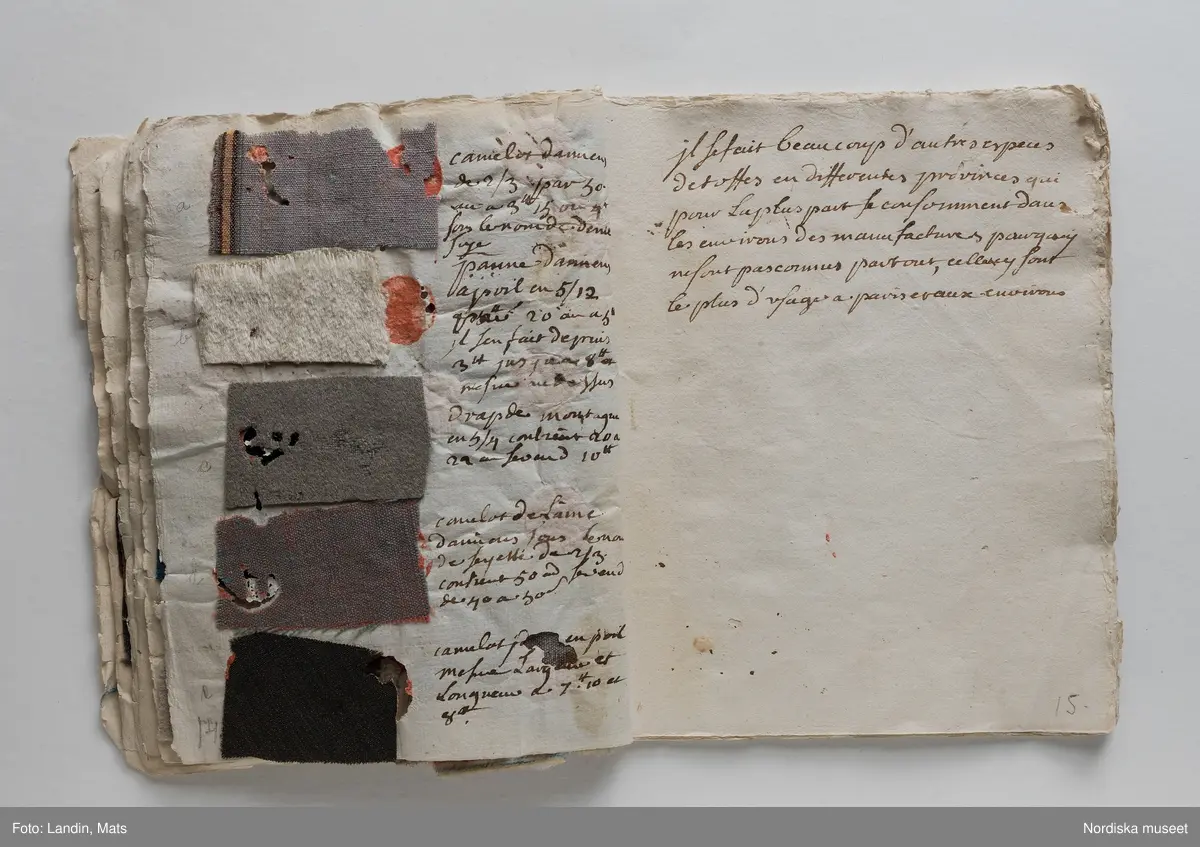 a
camelot damien
de 2/3 par 50
au a 3ᵗᵗ 15 ou 4ᵗ
sous le nom de demie
soye
b
panne damien
a poil en 5/12
20 au a 5ᵗ
jl sen fait depuis
3ᵗᵗ jusqua 8ᵗᵗ et
mesme au dessus
c
Drap de montagne
en 5/4 contient 20 a
22 au se vend 10ᵗᵗ
camelot de laine
damiens sous le no
de 2/3
contient 50 a se vend
de 40 a 50ˢ
e
camelot en poil
mesme Largeur et
Longueur a 7ᵗᵗ 10 et
8ᵗᵗ
14
jl se fait beaucoup d'autres especes
destoffes en differentes provinces qui
pour la plus part se consomment dans
les environs des manufactures pourquoy
ne sont pas connues partout, celles cy sont
le plus d'usage a paris et aux environs
15-
Foto: Landin, Mats
Nordiska museet